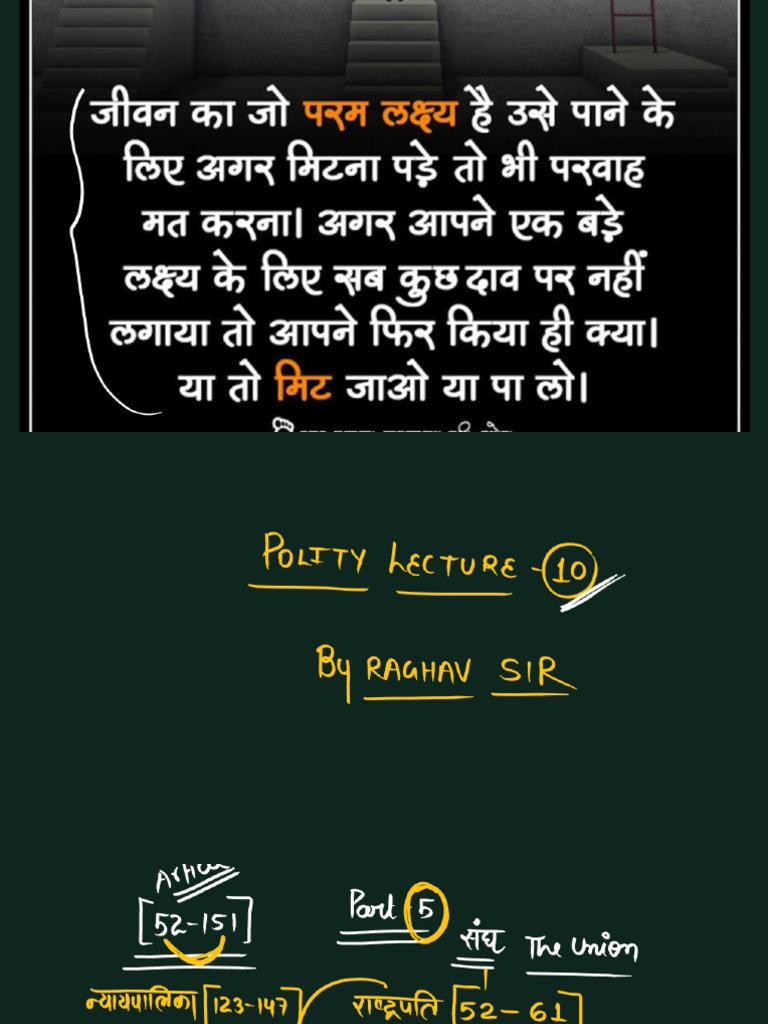 जीवन का जो परम लक्ष्य है उसे पाने के
लिए अगर मिटना पड़े तो भी परवाह
मत करना। अगर आपने एक बड़े
लक्ष्य के लिए सब कुछ दाव पर नहीं
लगाया तो आपने फिर किया ही क्या।
या तो मिट जाओ या पा लो।
POLITY LECTURE - 10
By RAGHAV SIR
[52-151]
Part 5
संघ The Union
न्यायपालिका [123-147] राष्ट्रपति [52-61]